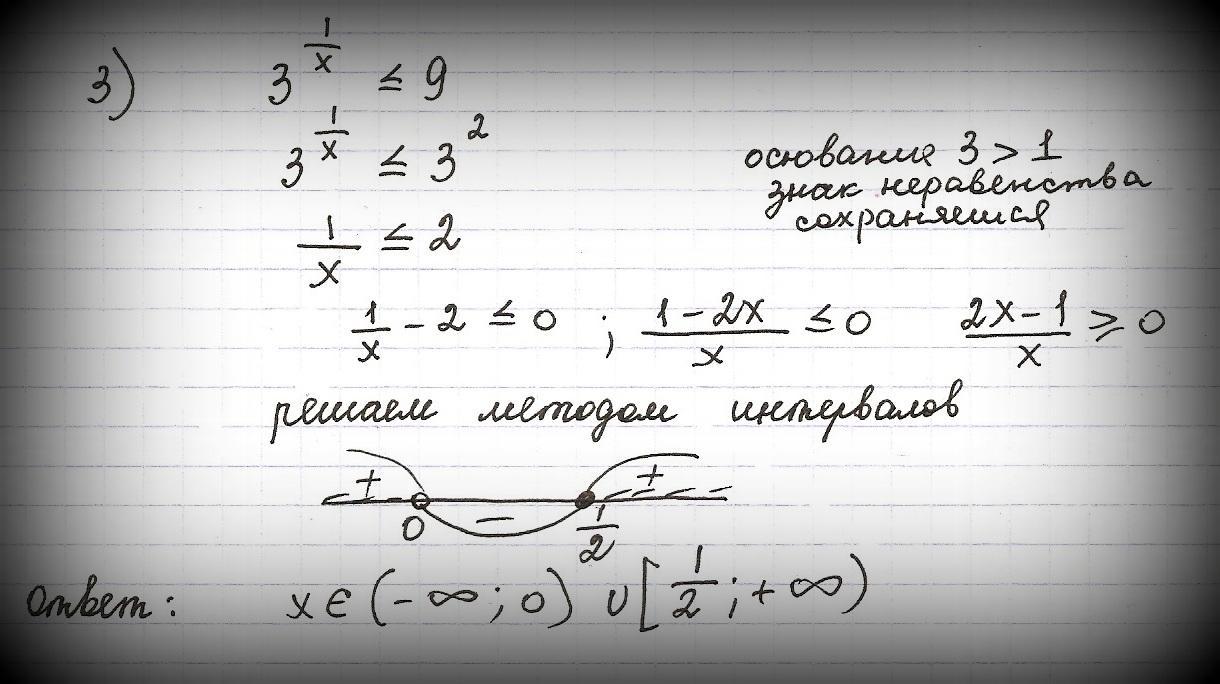 3) 3^(1/x) ≤ 9
3^(1/x) ≤ 3^2
основание 3 > 1
знак неравенства
сохраняется
1/x ≤ 2
1/x - 2 ≤ 0 ; (1-2x)/x ≤ 0 (2x-1)/x ≥ 0
решаем методом интервалов
+ − +
0 1/2
ответ: x ∈ (-∞; 0) ∪ [1/2; +∞)